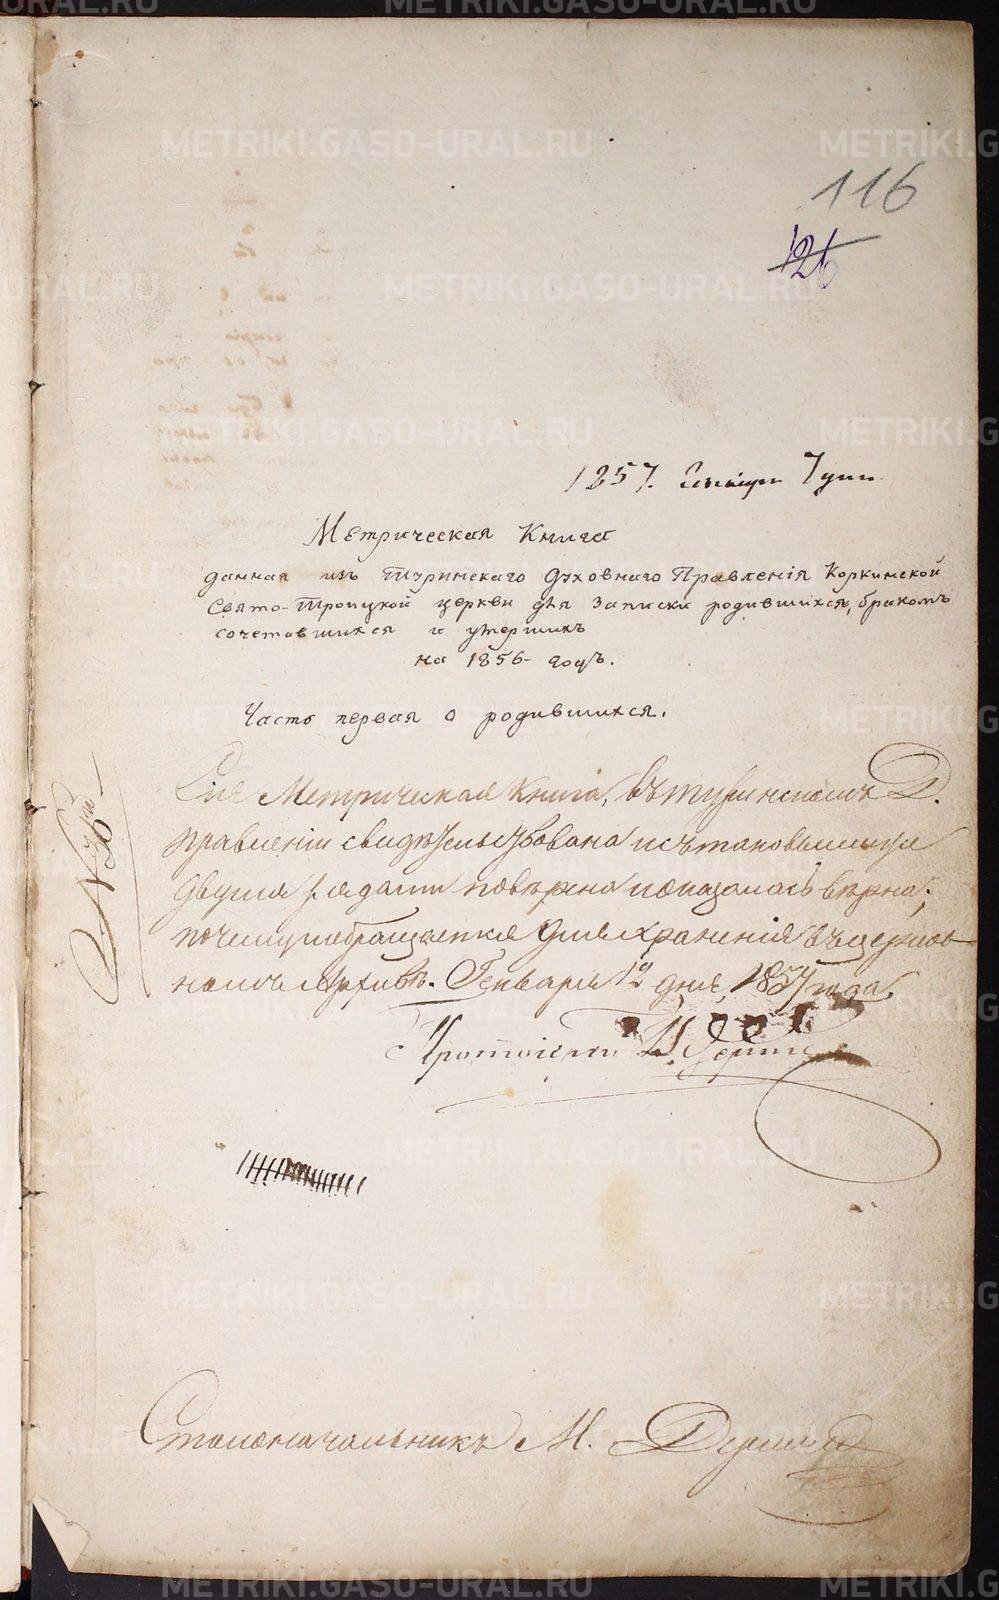 116
126
1857. Генваря 7 дня
Метрическая Книга
данная изъ Туринскаго Духовнаго Правленія Коркинской
Свято-Троицкой церкви для записки родившихся, бракомъ
сочетавшихся и умершихъ
на 1856 годъ.
Часть первая о родившихся.
Сія Метрическая Книга, въ Туринскомъ Д.
Правленіи свидѣтельствована и съ таковыми же
двумя рядами повѣрена и оказалась вѣрна;
почему и обращается для храненія въ церков
номъ Архивѣ. Генваря 12 дня 1857 года.
Протоіерей
Столоначальникъ М.